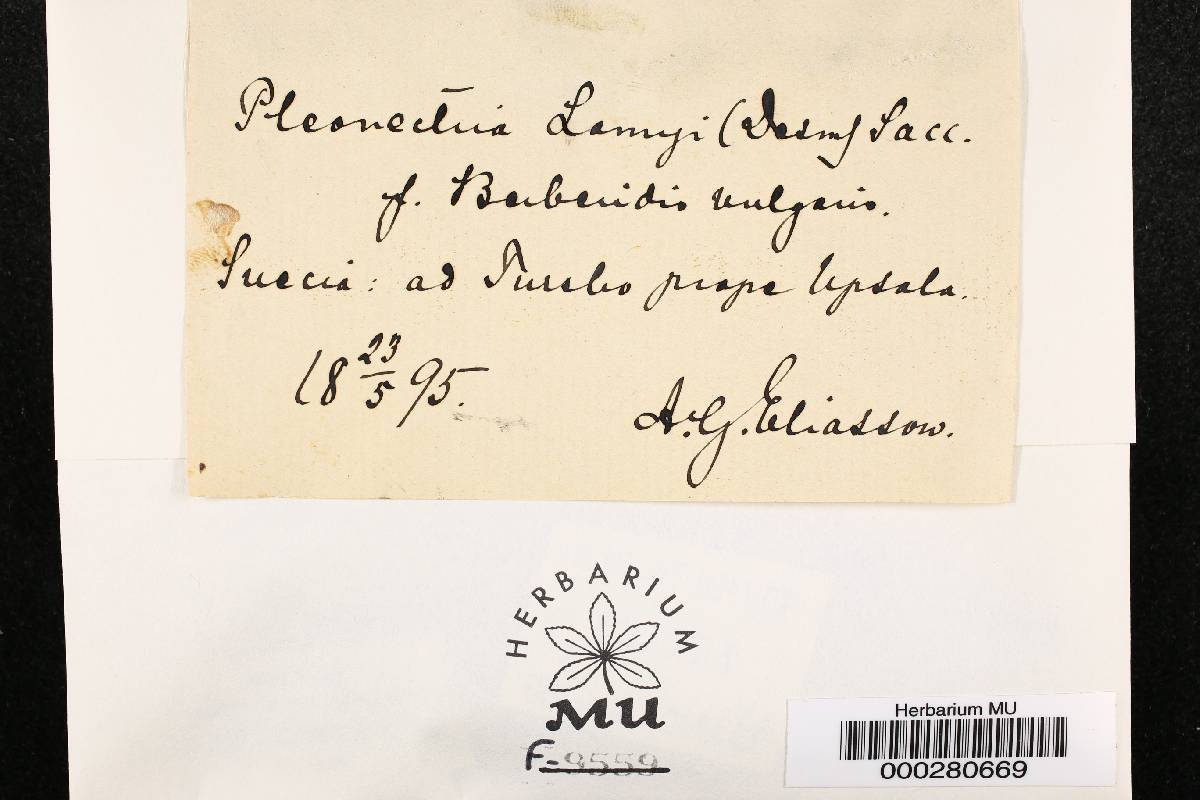 Pleonectria Lamyi (Desm) Sacc.
f. Berberidis vulgaris.
Suecia: ad prope Upsala.
18 23/5 95.
A. G. Eliasson.
HERBARIUM
MU
F-9559
Herbarium MU
000280669